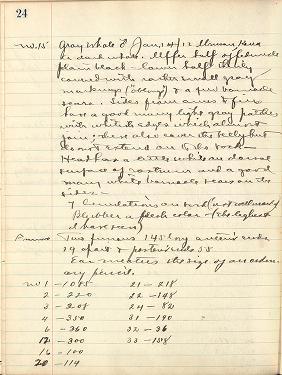 24
No. 15 Gray Whale ♂ Jan. 14/12 Ulsan, Korea
dark whale. Upper half of
plain black - lower half thickly
covered with rather small gray
markings & a few barnacle
scars. Sides from anus to fin
has a good many light gray patches
with whitish edges which almost
join; these also cover the belly but
do not extend on to the back.
Head has a little white on dorsal
surface of rostrum and a good
many white barnacle scars on the
sides.
7 Corrugations on
Blubber a flesh color - (the lightest
I have seen)
Two furrows 145 long anterior ends
29 apart & posterior ends 55
Ear measures the size of an ordin-
ary pencil.
No 1 - 1085 21 - 218
2 - 220 22 - 148
3 - 208 24 - 82
4 - 350 31 - 190
6 - 360 32 - 36
12 - 300 33 - 158
16 - 100
20 - 114